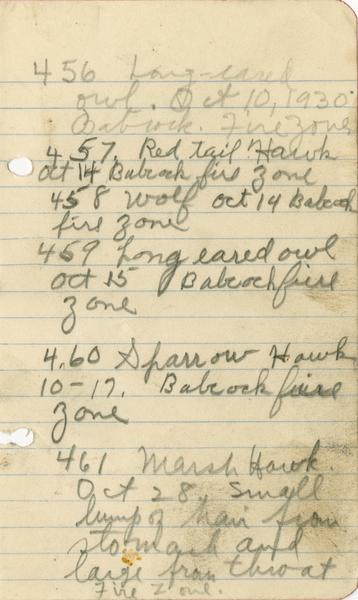 456 Long-eared
owl. Oct 10, 1930.
Babcock. Fire Zone
457. Red tail Hawk
Oct 14 Babcock fire zone
458 Wolf Oct 14 Babcock
fire zone
459 Long eared owl
Oct 15 Babcock fire
zone
4.60 Sparrow Hawk
10-17. Babcock fire
zone
461 Marsh Hawk.
Oct 28. Small
lump of hair from
stomach and
large from throat
Fire Zone.